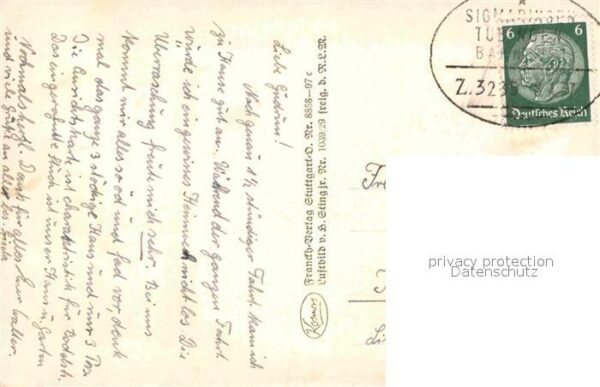 Liebe Gudrun!
Nach quan 1½ stündiger Fahrt kam ich
zu Hause gut an. Während der ganzen Fahrt
würde ich ein gewisses Heimweh nicht los. Die
Überraschung freut mich sehr. Bei uns
kommt mir alles so öd und fad vor, denk
mal das ganze 3 stöckige Haus und nur 3 Pers.
Die Ansichtskarte ist charakteristisch für
Das eingerahmte Stück ist unser Haus u. Garten
Nochmals herzl. Dank für alles Euer Walter.
und viele Grüße an alle, bes.
Franckh-Verlag Stuttgart-O. Nr. 8858-97 c
Luftbild v. H. Sting jr. Nr. 1039/29 freig. d. R.L.M.
Kosmos
SIGMARINGEN
TÜBINGEN
BAHNPOST
Z. 323
6 6
Deutsches Reich
Fr
privacy protection
Datenschutz